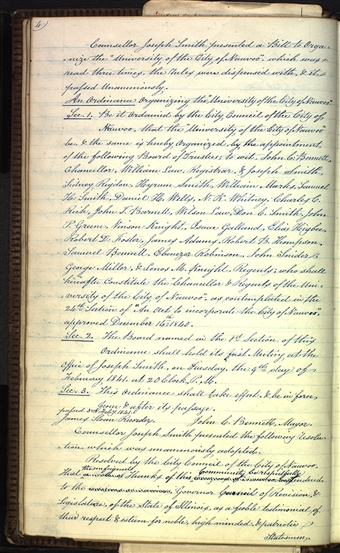 4
Councellor Joseph Smith presented a Bill to Orga-
nize the "University of the City of Nauvoo" which was
read three times, the rules were dispensed with, & it
passed Unanimously.
An Ordinance Organizing the "University of the City of Nauvoo"
Sec. 1. Be it ordained by the City Council of the City of
Nauvoo, that the "University of the City of Nauvoo"
be, & the same is hereby Organized, by the appointment
of the following Board of Trustees; to wit, John C. Bennett,
Chancellor, William Law, Registrar, & Joseph Smith,
Sidney Rigdon, Hyrum Smith, William Marks, Samuel
H. Smith, Daniel H. Wells, N. K. Whitney, Charles C.
Rich, John T. Barnett, Wilson Law, Don C. Smith, John
P. Greene, Vinson Knight, Isaac Galland, Elias Higbee,
Robert D. Foster, James Adams, Robert B. Thompson,
Samuel Bennett, Ebenezer Robinson, John Snider,
George Miller, & Lenos M. Knight, Regents; who shall
hereafter Constitute the Chancellor & Regents of the "Uni-
versity of the City of Nauvoo", as contemplated in the
24th Section of "An act to incorporate the City of Nauvoo,"
approved December 16, 1840.
Sec. 2. The Board named in the 1st Section of this
Ordinance shall hold its first Meeting at the
Office of Joseph Smith, on Tuesday, the 9th day of
February 1841, at 2 O'Clock, P.M.
Sec. 3. This Ordinance shall take effect, & be in force,
from & after its passage.
passed Feby 3d 1841.
James Sloan Recorder. John C. Bennett, Mayor.
Councellor Joseph Smith presented the following resolu-
tion which was unanimously adopted.
Resolved by the City Council of the City of Nauvoo,
that the unfeigned thanks of this Community be respectfully tendered
to the Governor Council of Revision, &
Legislature, of the State of Illinois, as a feeble testimonial of
their respect & esteem for noble, high minded, & patriotic
Statesmen,